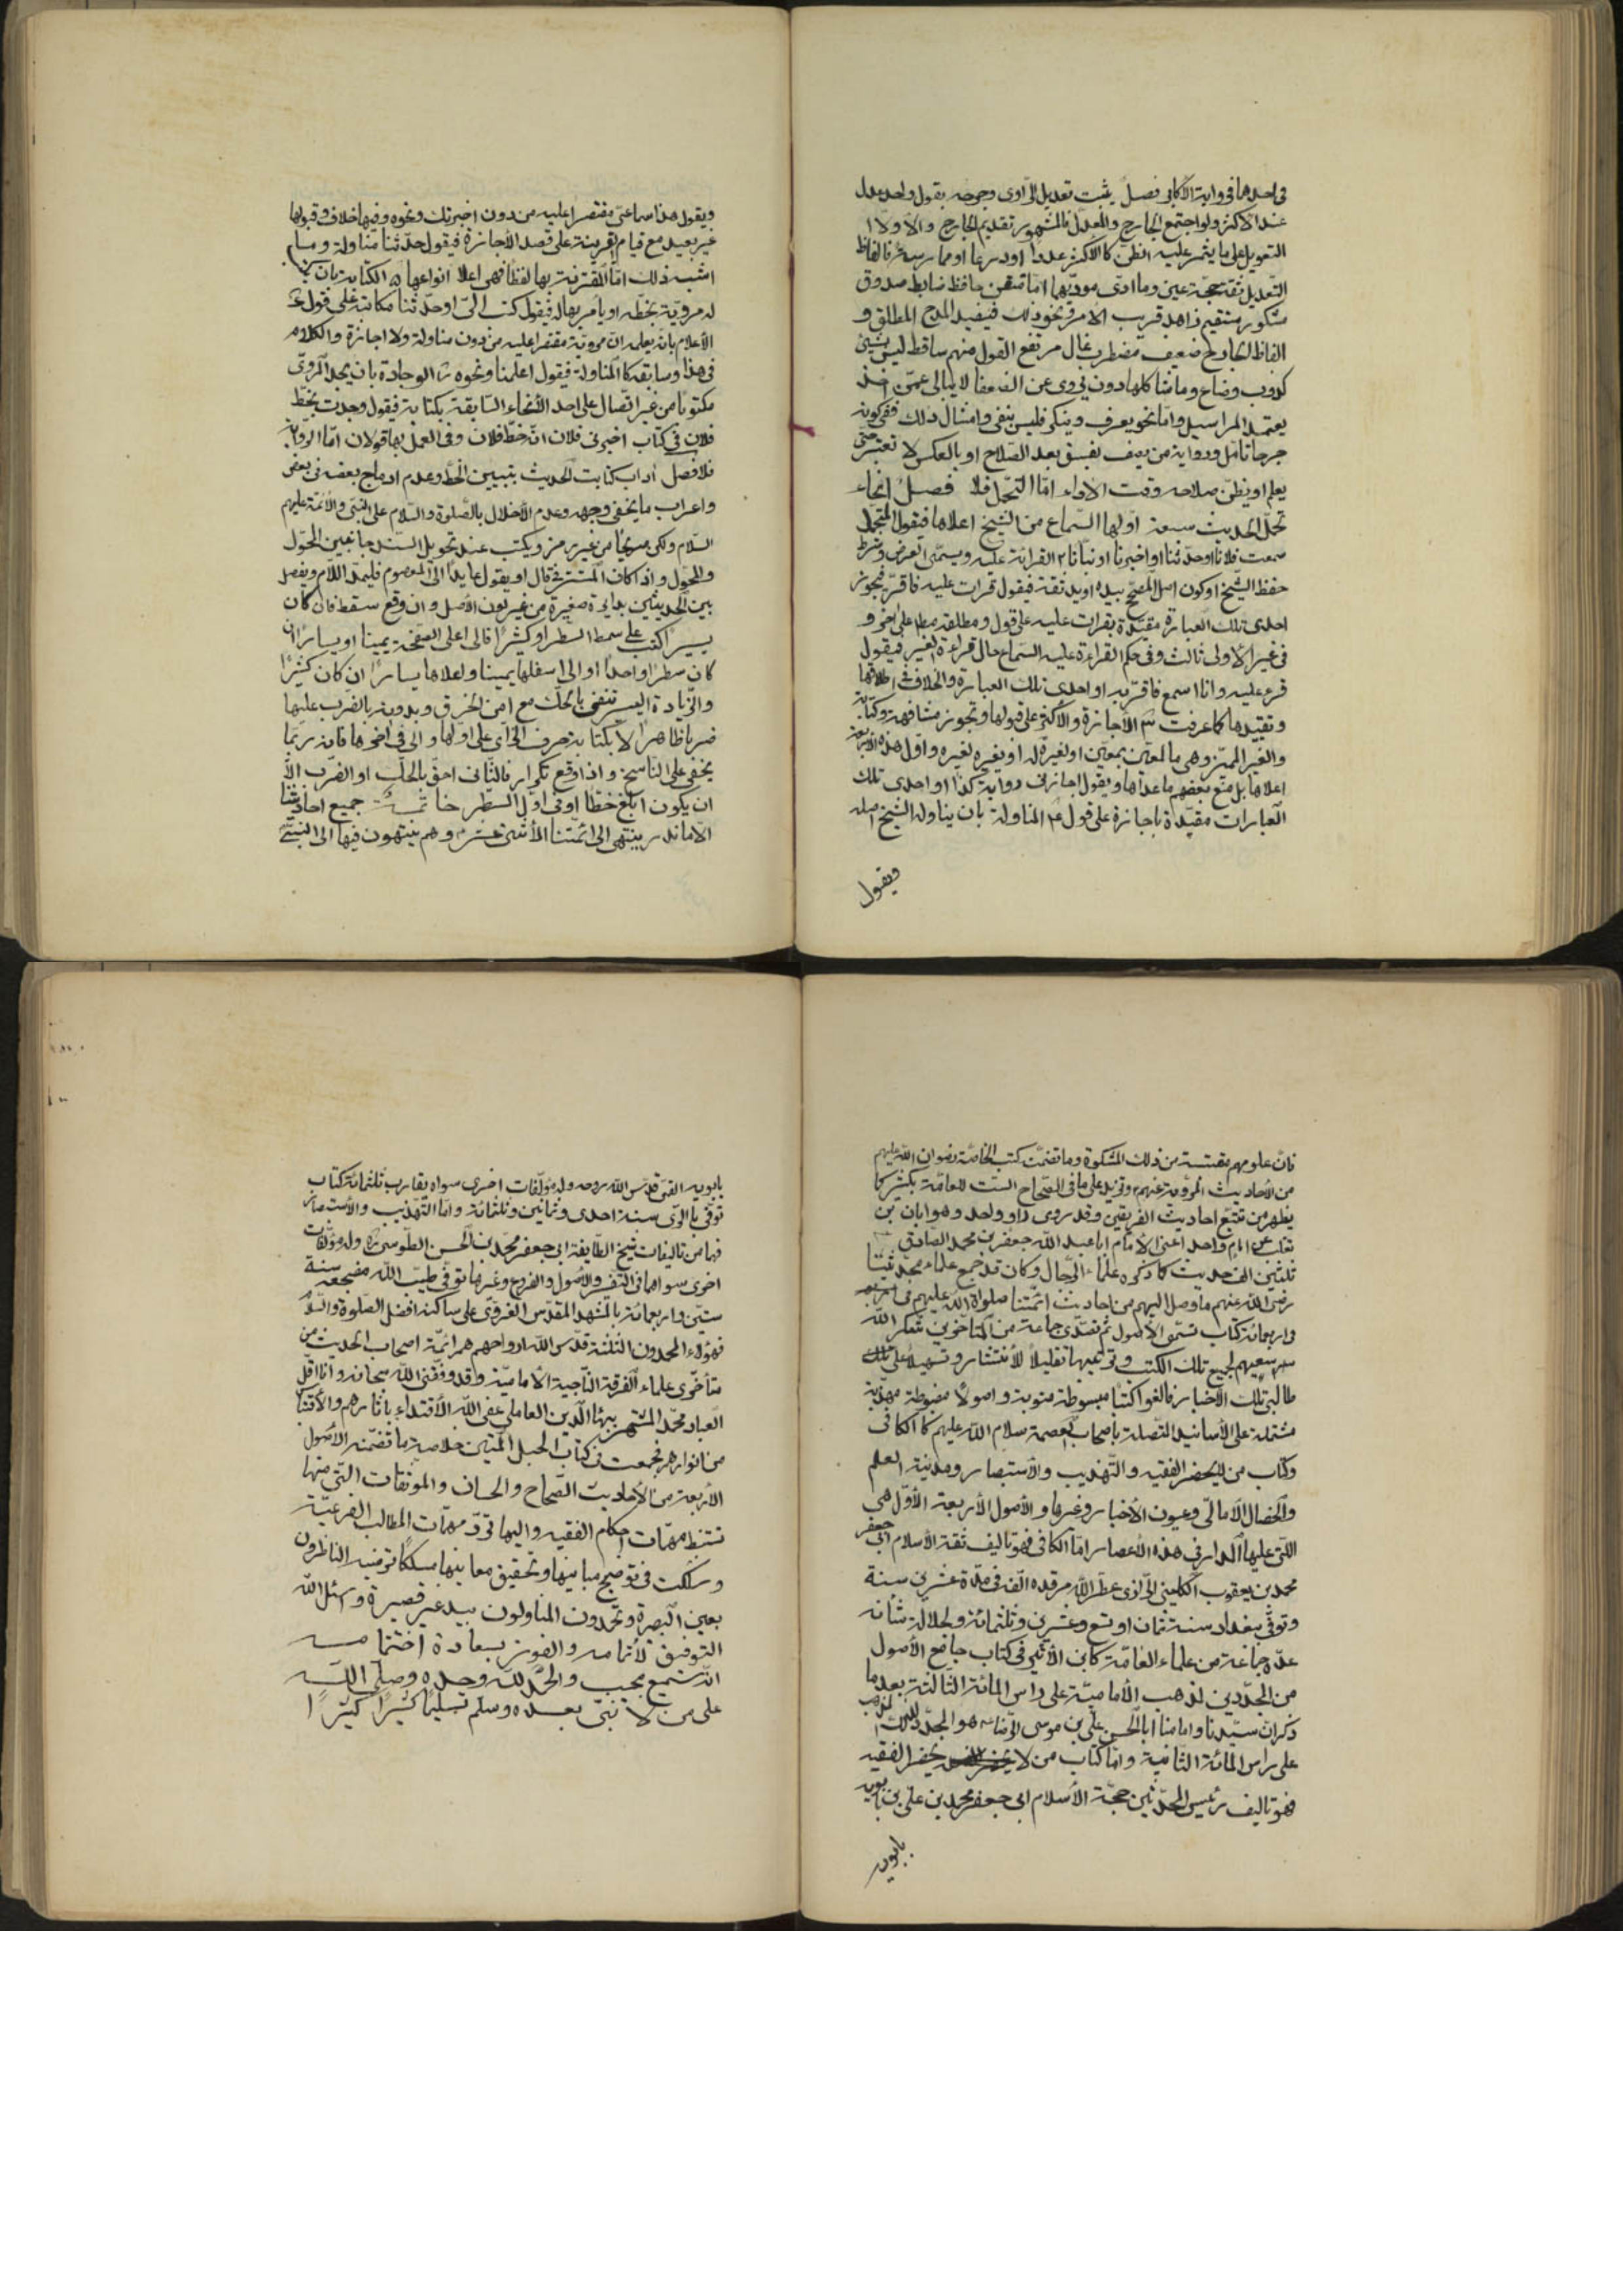 في احدهما في رواية الأكابر فصل يثبت تعديل الراوى وجرحه بقول واحد عدل
عند الأكثر ولو اجتمع الجارح والمعدل فالمشهور تقديم الجارح والأولى
التعويل على ما يثمر غلبة الظن كالأكثر عددا اورعا او ممارسة فالفاظ
التعديل ثقة حجة عين وما ادى مؤديهما اما متقن حافظ ضابط صدوق
مشكور مستقيم زاهد قريب الامر ونحو ذلك فيفيد المدح المطلق و
الفاظ الجارح ضعيف مضطرب غال مرتفع القول متهم ساقط ليس بشيئ
كذوب وضاع وما شاكلها دون يروى عن الضعفا لا يبالى عمن اخذ
يعتمد المراسيل واما نحو يعرف وينكر ليس بنقى وامثال ذلك ففى كونه
جرحا تامل ورواية من يصف بفسق بعد الصلاح او بالعكس لا تعتبر حتى
يعلم او يظن صلاحه وقت الأداء اما التحمل فلا فصل انحاء
تحمل الحديث سبعة اولها السماع من الشيخ اعلاها فيقول المتحمل
سمعت فلانا او حدثنا او اخبرنا او نبانا ٢ القرائة عليه ويسمى العرض وشرطه
حفظ الشيخ او كون اصل المصحح بيده او يد ثقة فيقول قرات عليه فاقر به ويجوز
احدى تلك العبارة مقيدة بقرات عليه على قول ومطلقة مطلقا على اخر و
في غير الأولى ثالث وفي حكم القراءة عليه السماع حال قراءة الغير فيقول
قرء عليه وانا اسمع فاقر به او احدى تلك العبارة والخلاف في اطلاقها
وتقييدها كما عرفت ٣ الأجازة والأكثر على قبولها وتجوز مشافهة وكتابة
والغير المميز وهى ما لمعين بمعين او بغيره او لغيره بغيره واول هذه الأربعة
اعلاها بل منع بعضهم ما عداها ويقول اجازنى رواية كذا او احدى تلك
العبارات مقيدة باجازة على قول ٤ المناولة بان يناوله الشيخ اصله
ويقول
ويقول هذا سماعى مقتصرا عليه من دون اجزتك ونحوه وفيها خلاف وقبولها
غير بعيد مع قيام القرينة على قصد الأجازة فيقول حدثنا مناولة وما
اشبه ذلك اما المقترنة بها لفظا فهى اعلا انواعها ٥ الكتابة بان يكتب
له مروية بخطه او يامر بها له فيقول كتب الى او حدثنا مكاتبة على قول ٦
الأعلام بان يعلمه ان مروية مقتصرا عليه من دون مناولة ولا اجازة والكلام
في هذا وسابقه كالمناولة فيقول اعلمنا ونحوه ٧ الوجادة بان يجد المروى
مكتوبا من غير اتصال على احد الأنحاء السابقة بكتابة فيقول وجدت بخط
فلان في كتاب اخبرنى فلان انه خط فلان وفى العمل بها قولان اما الرواية
فلا فصل اداب كتابت الحديث بتبيين الخط وعدم ادماج بعضه في بعض
واعراب ما يخفى وجهه وعدم الأخلال بالصلوة والسلام على النبى والأئمة عليهم
السلام ولكن صريحا من غير رمز ويكتب عند تحويل السند حا بين المحول
والمحول واذا كان المستتر في قال او يقول عايدا الى المعصوم فليمد اللام ويفصل
بين الحديثين بدايرة صغيرة من غير لون الأصل وان وقع سقط فان كان
يسيرا كتب على سمط السطر او كثيرا فالى اعلى الصفحة يمينا او يسارا ان
كان سطرا واحدا او الى اسفلها يمينا واعلاها يسارا ان كان كثيرا
والزيادة اليسير تنفى بالحك مع امن الخرق وبدونه بالضرب عليها
ضربا ظاهرا لا بكتابة حرف الزاى على اولها والى في اخرها فانه ربما
يخفى على الناسخ واذا وقع تكرار فالثانى احق بالحك او الضرب الا
ان يكون ابلغ خطا او في اول السطر خاتمة جميع احاديثنا
الا ما ندر ينتهى الى ائمتنا الأثنى عشر وهم ينتهون فيها الى النبى
فان علومهم مقتبسة من ذلك المشكوة وما تضمنت كتب الخاصة رضوان الله عليهم
من الأحاديث المروية عنهم ٤ وتزيد على ما في الصحاح الست للعامة بكثير كما
يظهر من تتبع احاديث الفريقين وقد روى راو واحد وهو ابان بن
تغلب عن امام واحد اعنى الأمام ابا عبد الله جعفر بن محمد الصادق
ثلثين الف حديث كما ذكره علماء الرجال وكان قد جمع علماء محدثينا
رضى الله عنهم ما وصل اليهم من احاديث ائمتنا صلواة الله عليهم في اربعه
في اربعمائة كتاب تسمى الأصول ثم تصدى جماعة من المتاخرين شكر الله
سعيهم لجميع تلك الكتب وترتيبها تقليلا للأنتشار وتسهيلا على تلك
طالبى تلك الأخبار فالفوا كتبا مبسوطة مبوبة واصولا مضبوطة مهذبة
مشتملة على الأسانيد المتصلة باصحاب العصمة سلام الله عليهم كالكافى
وكتاب من لا يحضر الفقيه والتهذيب والأستبصار ومدينة العلم
والخصال الأمالى وعيون الأخبار وغيرها والأصول الأربعة الأول هى
اللتى عليها المدار في هذه الأعصار اما الكافى فهو تاليف ثقة الأسلام ابى جعفر
محمد بن يعقوب الكلينى الرازى عطر الله مرقده الفه في مدة عشرين سنة
وتوفى ببغداد سنة ثمان او تسع وعشرين وثلثمائة ولجلالة شانه
عده جماعة من علماء العامة كابن الأثير في كتاب جامع الأصول
من المجددين لمذهب الأمامية على راس المائة الثالثة بعد ما
ذكر ان سيدنا وامامنا ابا الحسن على بن موسى الرضا ٤ هو المجدد لذلك المذهب
على راس المائة الثانية واما كتاب من لا يحضر الفقيه
فهو تاليف رئيس المحدثين حجة الأسلام ابى جعفر محمد بن على بن بابويه
بابويه
بابويه القمى قدس الله روحه وله مؤلفات اخرى سواه يقارب ثلثمائة كتاب
توفى بالرى سنة احدى وثمانين وثلثمائة واما التهذيب والأستبصار
فهما من تاليفات شيخ الطايفة ابى جعفر محمد بن الحسن الطوسى ره وله مؤلفات
اخرى سواهما في التفسير والأصول والفروع وغيرها توفى طيب الله مضجعه سنة
ستين واربعمائة بالمشهد المقدس الغروى على ساكنه افضل الصلوة والسلام
فهؤلاء المحمدون الثلثة قدس الله ارواحهم هم ائمة اصحاب الحديث من
متأخرى علماء الفرقة الناجية الأمامية وقد وفقنى الله سبحانه وانا اقل
العباد محمد المشتهر ببهاء الدين العاملى عفى الله الأقتداء باثارهم والأقتباس
من انوارهم فجمعت في كتاب الحبل المتين خلاصة ما تضمنه الأصول
الأربعة من الأحاديث الصحاح والحسان والموثقات التى منها
تستنبط مهمات احكام الفقيه واليها ترد مهمات المطالب الفرعية
وسلكت في توضيح مبانيها وتحقيق معانيها مسلكا يرضيه الناظرون
بعين البصيرة ويحمدون المتناولون بيد غير قصيرة واسئل الله
التوفيق لأتمامه والفوز بسعادة اختتامه
انه سميع مجيب والحمد لله وحده وصلى الله
على من لا نبى بعده وسلم تسليما كثيرا كثيرا